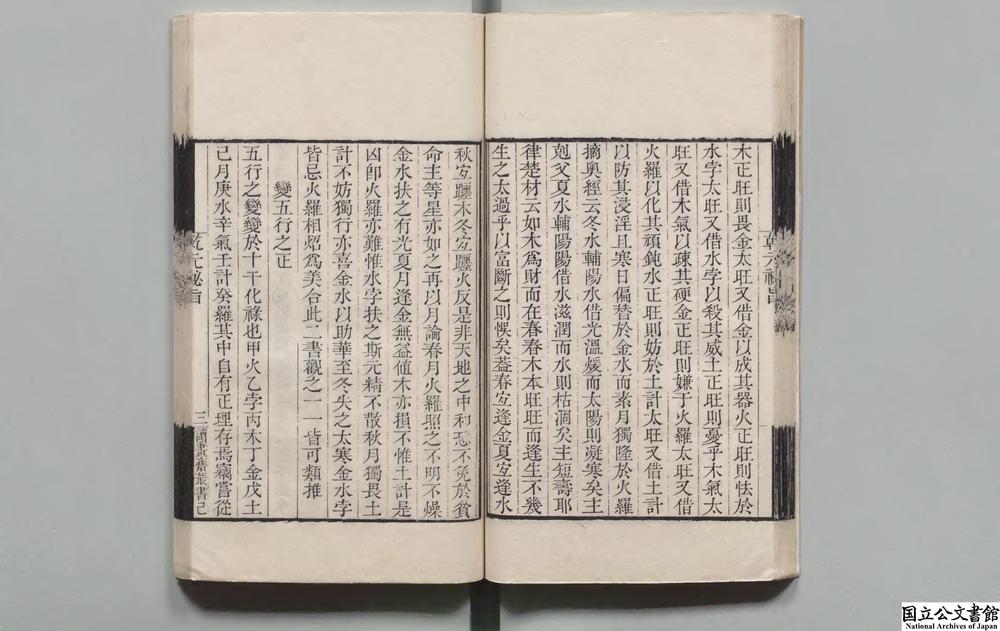 木正旺則畏金太旺又借金以成其器火正旺則怯於
水孛太旺又借水孛以殺其威土正旺則憂乎木氣太
旺又借木氣以疎其硬金正旺則嫌于火羅太旺又借
火羅以化其頑鈍水正旺則妨於土計太旺又借土計
以防其浸淫且寒日偏替於金水而素月獨隆於火羅
摘奧經云冬水輔陽水借光溫煖而太陽則凝寒矣主
剋父夏水輔陽陽借水滋潤而水則枯涸矣主短壽耶
律楚材云如木為財而在春春木本旺旺而逢生不幾
生之太過乎以富斷之則悞矣葢春宐逢金夏宐逢水
秋宐躔木冬宐躔火反是非天地之中和恐不免於貧
命主等星亦如之再以月論春月火羅照之不明不燥
金水扶之有光夏月逢金無益値木亦損不惟土計是
凶卽火羅亦難惟水孛扶之斯元精不散秋月獨畏土
計不妨獨行亦喜金水以助華至冬失之太寒金水孛
皆忌火羅相炤爲美合此二書觀之一一皆可類推
變五行之正
五行之變變於十干化祿也甲火乙孛丙木丁金戊土
己月庚水辛氣壬計癸羅其中自有正理存焉竊嘗從
乾元秘旨
乾元秘旨
三
讀書齋叢書己
国立公文書館
National Archives of Japan